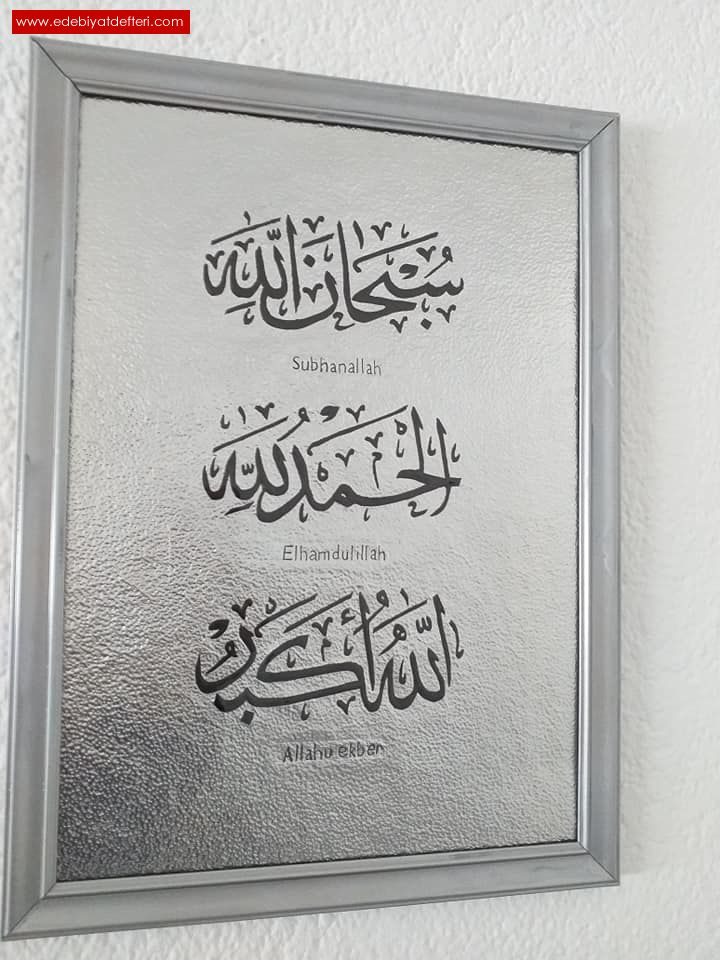 www.edebiyatdefteri.com
سُبْحَانَ اللّٰهِ
Subhanallah
اَلْحَمْدُ لِلّٰهِ
Elhamdulillah
اَللّٰهُ أَكْبَرُ
Allahu ekber